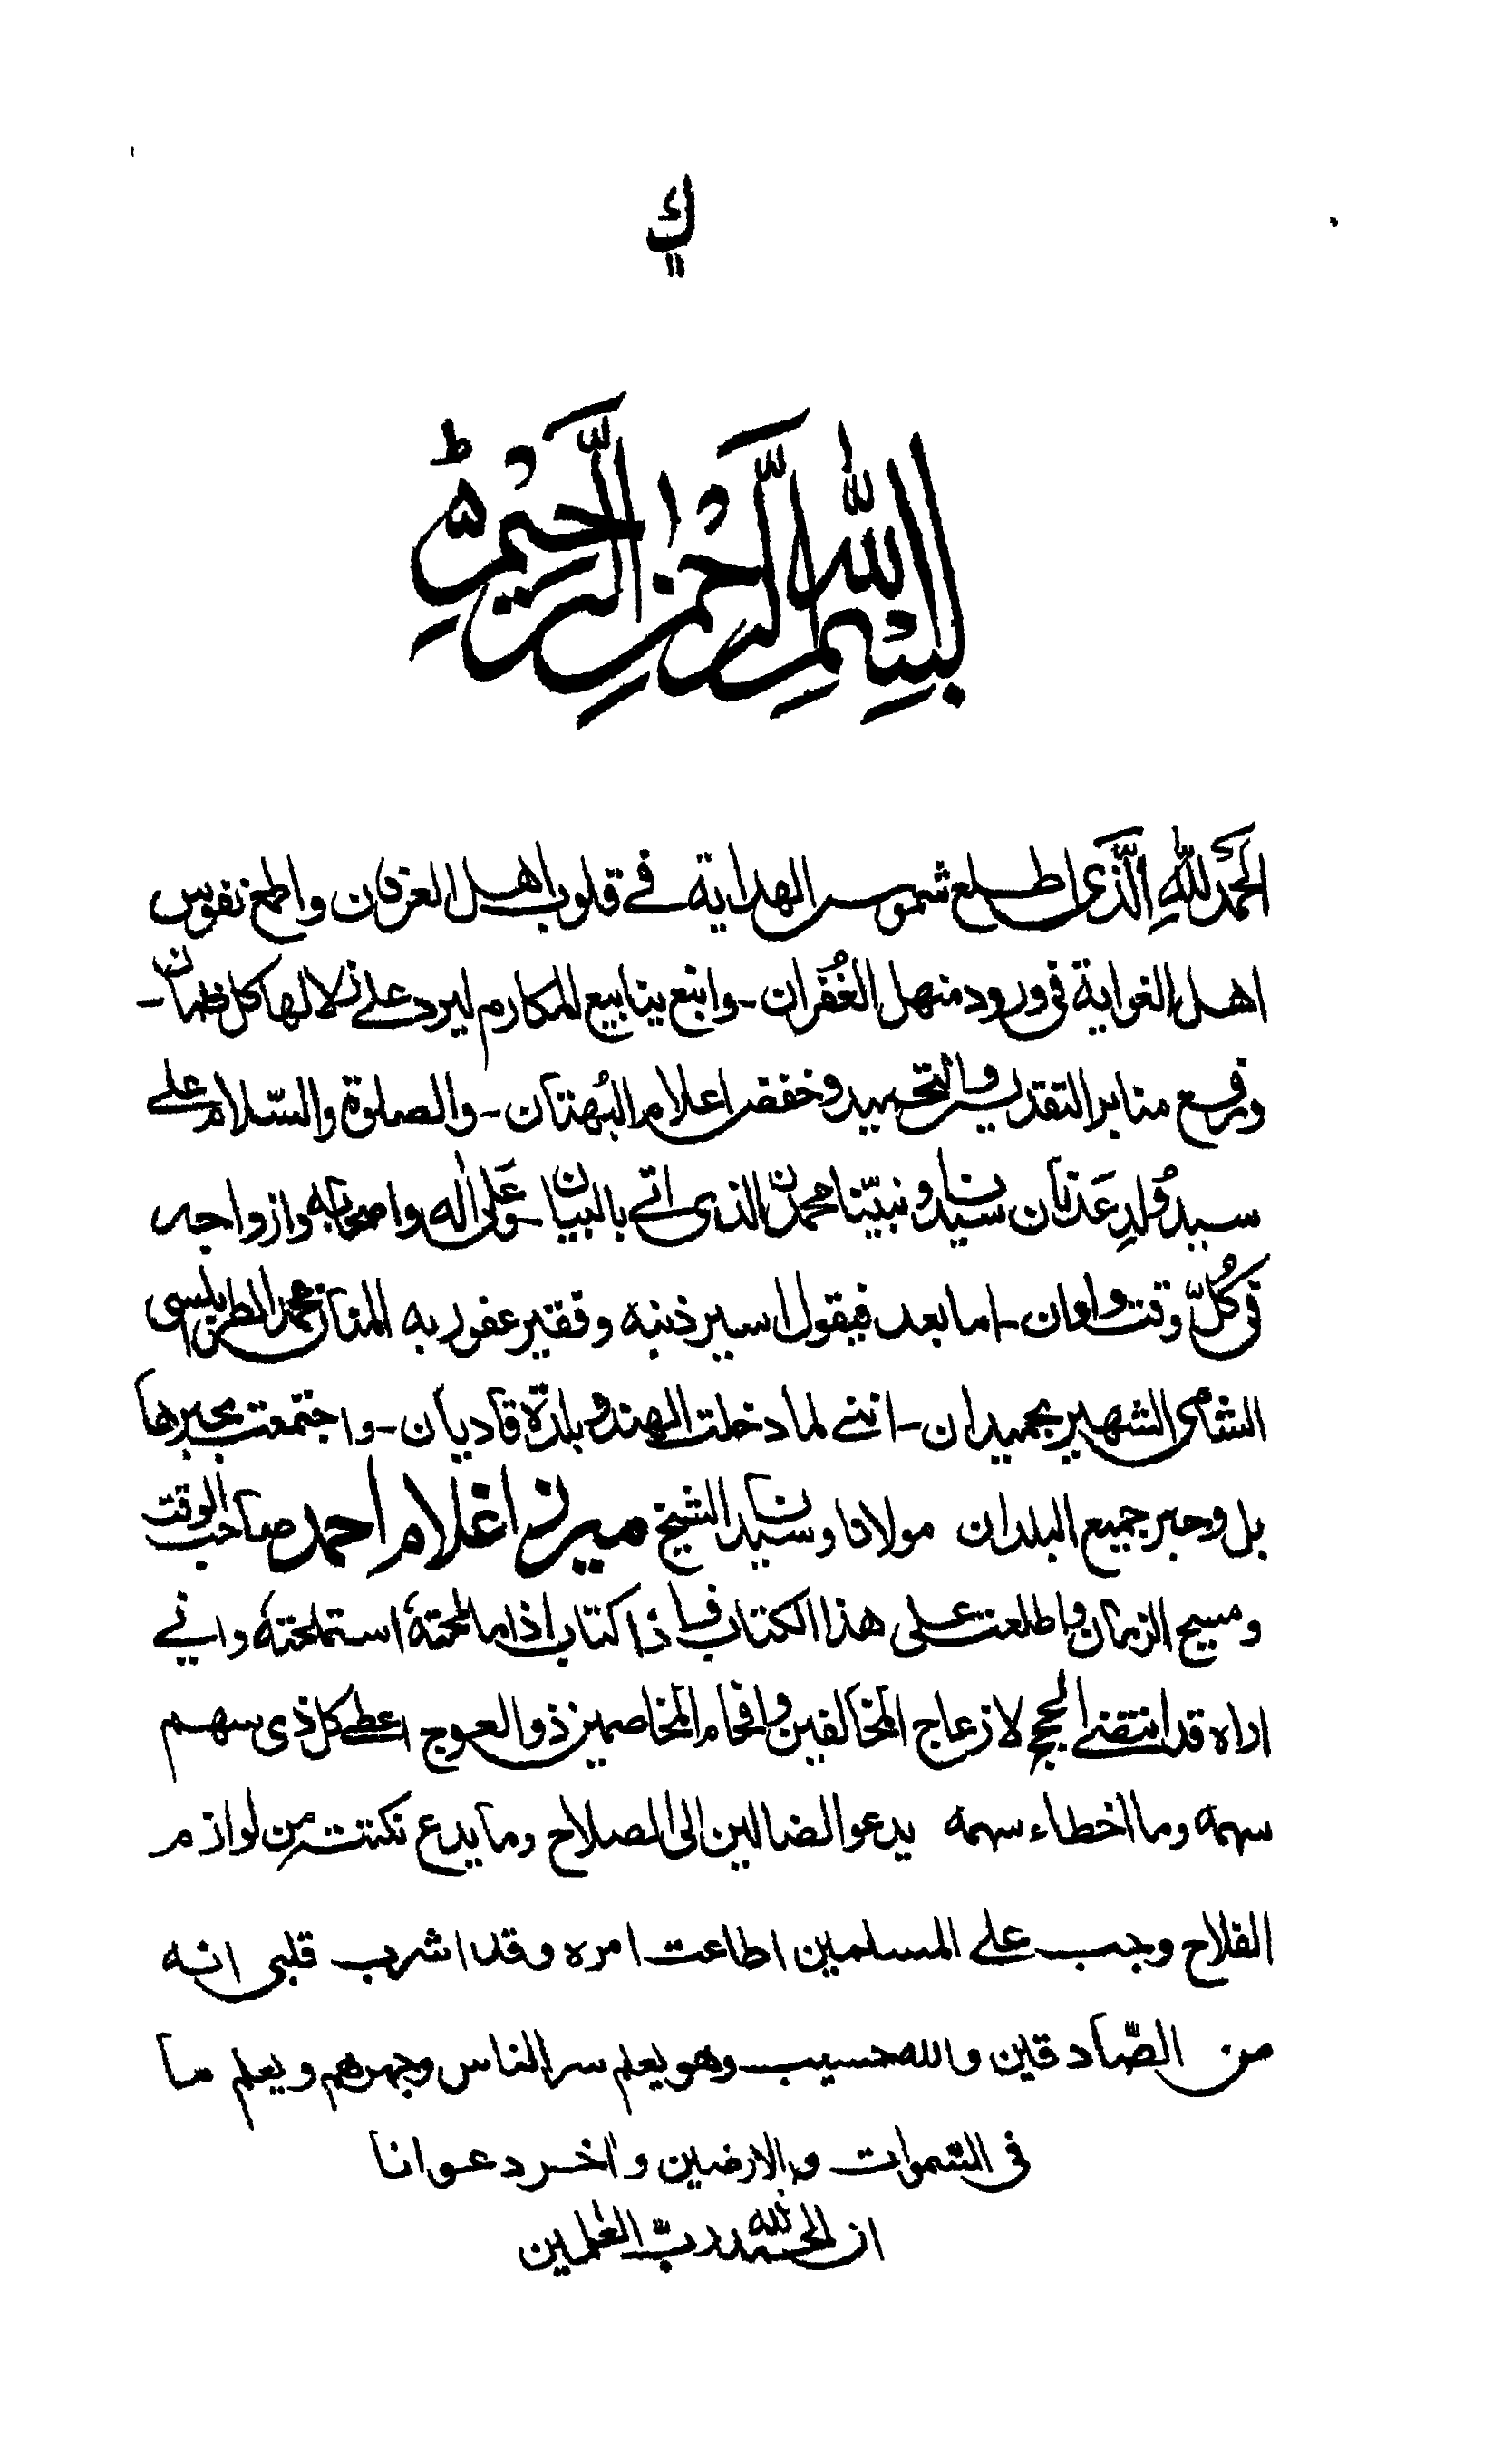 ك
بِسْمِ اللّٰهِ الرَّحْمٰنِ الرَّحِيْمِ ط
الحَمدُ لِلّٰهِ الَّذى اطلع شموس الهداية فے قلوب اهل العرفان واطمع نفوس
اهل الغواية فى ورود منهل الغُفران۔ وانبع ينابيع المكارم ليرد علے زلالها كل ظمآن۔
ورفع منابر التقديس والتحميد وخفض اعلام البُهتان۔ والصلوة والسّلام علے
سيد وُلدِ عَدنان سيدنا ونبيّنا محمدن الذى اتے بالبيان۔ وعَلىٰ اٰله واصحابه وازواجه
فى كُلِّ وقت واوان۔ اما بعد فيقول اسير ذنبه وفقير عفو ربه المنان محمد الطرابلسى
الشامى الشهير بحميدان۔ اننے لما دخلت الهند وبلدة قاديان۔ واجتمعت بحبرها
بل وحبر جميع البلدان مولانا وسيدنا الشيخ ميرزا غلام احمد صاحب الوقت
ومسيح الزمان واطلعت على هذا الكتاب فاذا كتاب اذا ما لمحتهٗ استملحتهٗ وانے
اراه قد انتضے الحجج لازعاج المخالفين وافحام المخاصمين ذو العوج اعطے كل ذى سهم
سهمه وما اخطاء سهمه يدعو الضالين الى الصلاح وما يدع نكتة من لوازم
الفلاح وجب علے المسلمين اطاعت امره وقد اشرب قلبى انه
من الصّادقين والله حسيب وهو يعلم سر الناس وجهرهم ويعلم ما
فى السّموات والارضين واٰخر دعوانا
ان الحمد لله ربّ العٰلمين